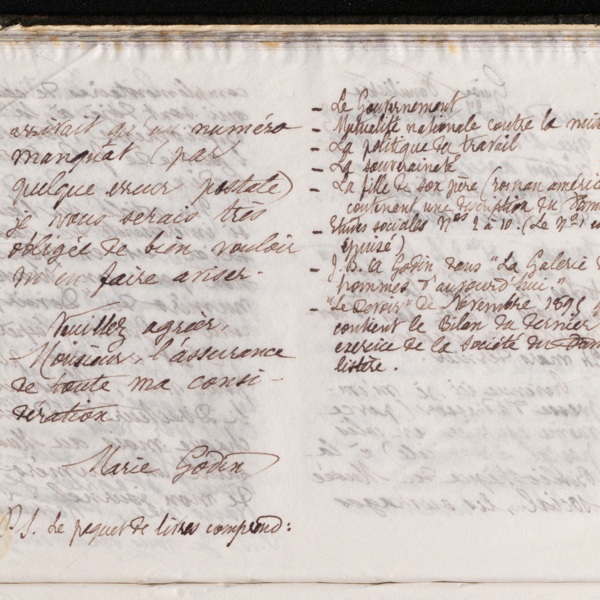 arrivait qu'un numéro
manquât (par
quelque erreur postale)
je vous serais très
obligée de bien vouloir
m'en faire aviser.
Veuillez agréer,
Monsieur, l'assurance
de toute ma consi-
dération
Marie Godin
P.S. Le paquet de livres comprend:
- Le Gouvernement
- Mutualité nationale contre la misère
- La politique du travail
- La souveraineté
- La fille de son père (roman améric
contenant une description du Fam
- Etudes sociales Nos 2 à 10. (Le No 1 es
épuisé)
- J. Bte A Godin dans "La Galerie d
hommes d'aujourd'hui."
- "Le Devoir" de Novembre 1895
contient le Bilan du dernier
exercice de la Société du Fami
listère.